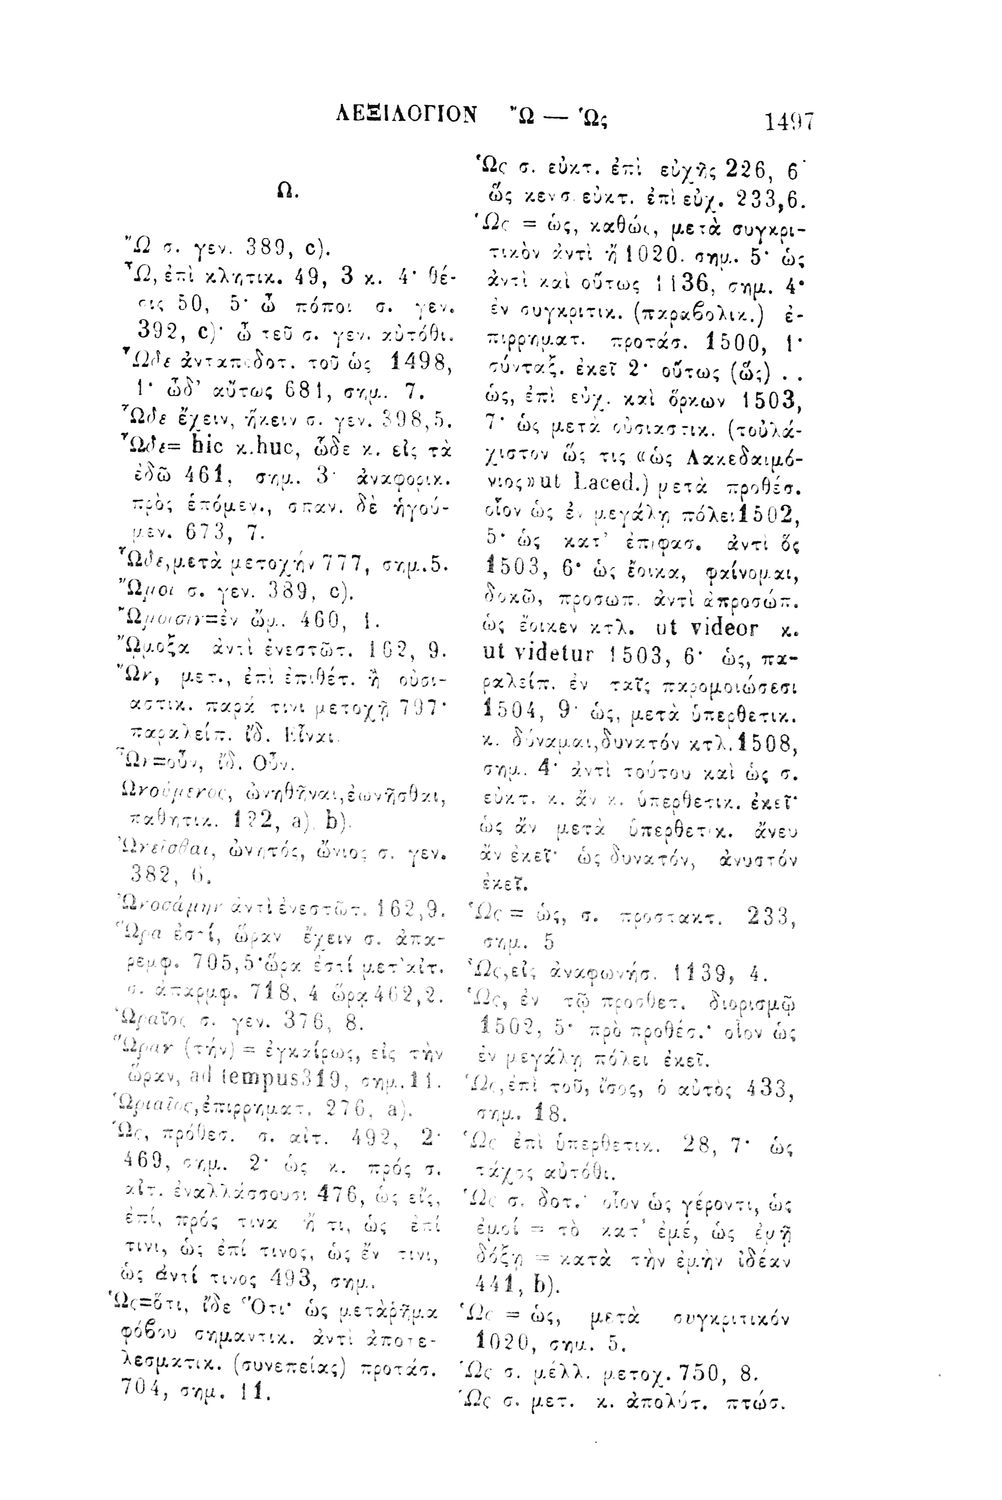 ΛΕΞΙΛΟΓΙΟΝ Ὢ — Ὡς 1497
Ω.
Ὢ σ. γεν. 389, c).
Ὦ, ἐπὶ κλητικ. 49, 3 κ. 4· θέ-
σις 50, 5· ὦ πόποι σ. γεν.
392, c)· ὦ τεῦ σ. γεν. αὐτόθι.
Ὧδε ἀνταποδοτ. τοῦ ὡς 1498,
1· ὧδ' αὔτως 681, σημ. 7.
Ὧδε ἔχειν, ἥκειν σ. γεν. 398,5.
Ὧδε= hic κ.huc, ὧδε κ. εἰς τὰ
ἐδῶ 461, σημ. 3· ἀναφορικ.
πρὸς ἑπόμεν., σπαν. δὲ ἡγού-
μεν. 673, 7.
Ὧδε,μετὰ μετοχήν 777, σημ.5.
Ὤμοι σ. γεν. 389, c).
Ὤμοισιν=ἐν ὤμ. 460, 1.
Ὤμοξα ἀντὶ ἐνεστῶτ. 162, 9.
Ὤν, μετ., ἐπὶ ἐπιθέτ. ἢ οὐσι-
αστικ. παρά τινι μετοχῇ 797·
παραλείπ. ἴδ. Εἶναι.
Ὦν=οὖν, ἴδ. Οὖν.
Ὠνούμενος, ὠνηθῆναι,ἐωνῆσθαι,
παθητικ. 122, a). b).
Ὠνεῖσθαι, ὠνητός, ὤνιος σ. γεν.
382, 6.
Ὠνοσάμην ἀντὶ ἐνεστῶτ. 162,9.
Ὥρα ἐστί, ὥραν ἔχειν σ. ἀπα-
ρεμφ. 705,5·ὥρα ἐστί μετ'αἰτ.
σ. ἀπαρμφ. 718, 4 ὥρα 462,2.
Ὡραῖος σ. γεν. 376, 8.
Ὥραν (τὴν) = ἐγκαίρως, εἰς τὴν
ὥραν, ad tempus319, σημ.11.
Ὡριαῖος,ἐπιρρηματ. 276, a).
Ὡς, πρόθεσ. σ. αἰτ. 492, 2·
469, σημ. 2· ὡς κ. πρός σ.
αἰτ. ἐναλλάσσουσι 476, ὡς εἰς,
ἐπί, πρός τινα ἤ τι, ὡς ἐπί
τινι, ὡς ἐπί τινος, ὡς ἔν τινι,
ὡς ἀντί τινος 493, σημ.
Ὡς=ὅτι, ἴδε Ὅτι· ὡς μετὰρῆμα
φόβου σημαντικ. ἀντὶ ἀποτε-
λεσματικ. (συνεπείας) προτάσ.
704, σημ. 11.
Ὡς σ. εὐκτ. ἐπὶ εὐχῆς 226, 6·
ὥς κεν σ. εὐκτ. ἐπὶ εὐχ. 233,6.
Ὡς = ὡς, καθώς, μετὰ συγκρι-
τικὸν ἀντὶ ἢ 1020. σημ. 5· ὡς
ἀντὶ καὶ οὕτως 1136, σημ. 4·
ἐν συγκριτικ. (παραβολικ.) ἐ-
πιρρηματ. προτάσ. 1500, 1·
σύνταξ. ἐκεῖ 2· οὕτως (ὥς) . .
ὡς, ἐπὶ εὐχ. καὶ ὅρκων 1503,
7· ὡς μετὰ οὐσιαστικ. (τοὐλά-
χιστον ὥς τις «ὡς Λακεδαιμό-
νιος» ut Laced.) μετὰ προθέσ.
οἷον ὡς ἐν μεγάλῃ πόλει1502,
5· ὡς κατ' ἐπίφασ. ἀντὶ ὅς
1503, 6· ὡς ἔοικα, φαίνομαι,
δοκῶ, προσωπ. ἀντὶ ἀπροσώπ.
ὡς ἔοικεν κτλ. ut videor κ.
ut videtur 1503, 6· ὡς, πα-
ραλείπ. ἐν ταῖς παρομοιώσεσι
1504, 9· ὡς, μετὰ ὑπερθετικ.
κ. δύναμαι,δυνατόν κτλ.1508,
σημ. 4· ἀντὶ τούτου καὶ ὡς σ.
εὐκτ. κ. ἄν κ. ὑπερθετικ. ἐκεῖ·
ὡς ἂν μετὰ ὑπερθετικ. ἄνευ
ἂν ἐκεῖ· ὡς δυνατόν, ἀνυστόν
ἐκεῖ.
Ὡς = ὡς, σ. προστακτ. 233,
σημ. 5
Ὡς,εἰς ἀναφωνήσ. 1139, 4.
Ὡς, ἐν τῷ προσθετ. διορισμῷ
1502, 5· πρὸ προθέσ.· οἷον ὡς
ἐν μεγάλῃ πόλει ἐκεῖ.
Ὡς,ἐπὶ τοῦ, ἴσος, ὁ αὐτὸς 433,
σημ. 18.
Ὡς ἐπὶ ὑπερθετικ. 28, 7· ὡς
τάχος αὐτόθι.
Ὡς σ. δοτ.· οἷον ὡς γέροντι, ὡς
ἐμοί = τὸ κατ' ἐμέ, ὡς ἐμῇ
δόξῃ = κατὰ τὴν ἐμὴν ἰδέαν
441, b).
Ὡς = ὡς, μετὰ συγκριτικόν
1020, σημ. 5.
Ὡς σ. μέλλ. μετοχ. 750, 8.
Ὡς σ. μετ. κ. ἀπολύτ. πτώσ.